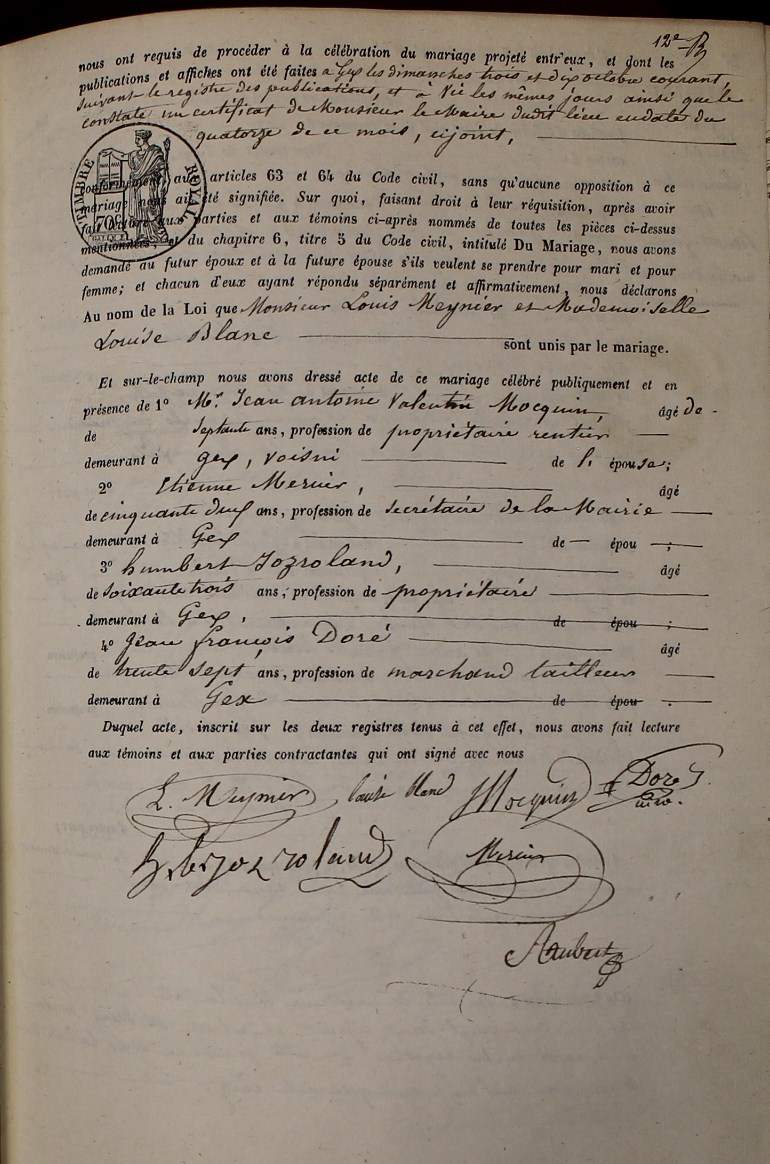 12e
nous ont requis de procéder à la célébration du mariage projeté entr'eux, et dont les
publications et affiches ont été faites a Gex les dimanches trois et dix octobre courant,
suivant le registre des publications, et à Vic les mêmes jours ainsi que le
constate un certificat de Monsieur le Maire dudit lieu en date du
quatorze de ce mois, cijoint,
TIMBRE ROYAL
70c
Conformément aux articles 63 et 64 du Code civil, sans qu'aucune opposition à ce
mariage nous ait été signifiée. Sur quoi, faisant droit à leur réquisition, après avoir
fait lecture aux parties et aux témoins ci-après nommés de toutes les pièces ci-dessus
mentionnées, et du chapitre 6, titre 5 du Code civil, intitulé Du Mariage, nous avons
demandé au futur époux et à la future épouse s'ils veulent se prendre pour mari et pour
femme; et chacun d'eux ayant répondu séparément et affirmativement, nous déclarons
Au nom de la Loi que Monsieur Louis Meynier et Mademoiselle
Louise Blanc sont unis par le mariage.
Et sur-le-champ nous avons dressé acte de ce mariage célébré publiquement et en
présence de 1o Mr. Jean antoine Valentin Mocquin, âgé de
de septante ans, profession de propriétaire rentier
demeurant à gex, voisin de l' épouse;
2o Etienne Mercier, âgé
de cinquante deux ans, profession de secrétaire de la Mairie
demeurant à Gex de épou ;
3o humbert Jozroland, âgé
de soixante trois ans, profession de propriétaire
demeurant à Gex, de épou ;
4o Jean françois Doré âgé
de trente sept ans, profession de marchand tailleur
demeurant à Gex de épou .
Duquel acte, inscrit sur les deux registres tenus à cet effet, nous avons fait lecture
aux témoins et aux parties contractantes qui ont signé avec nous
L. Meynier louise blanc Mocquin Doré
jozroland Mercier